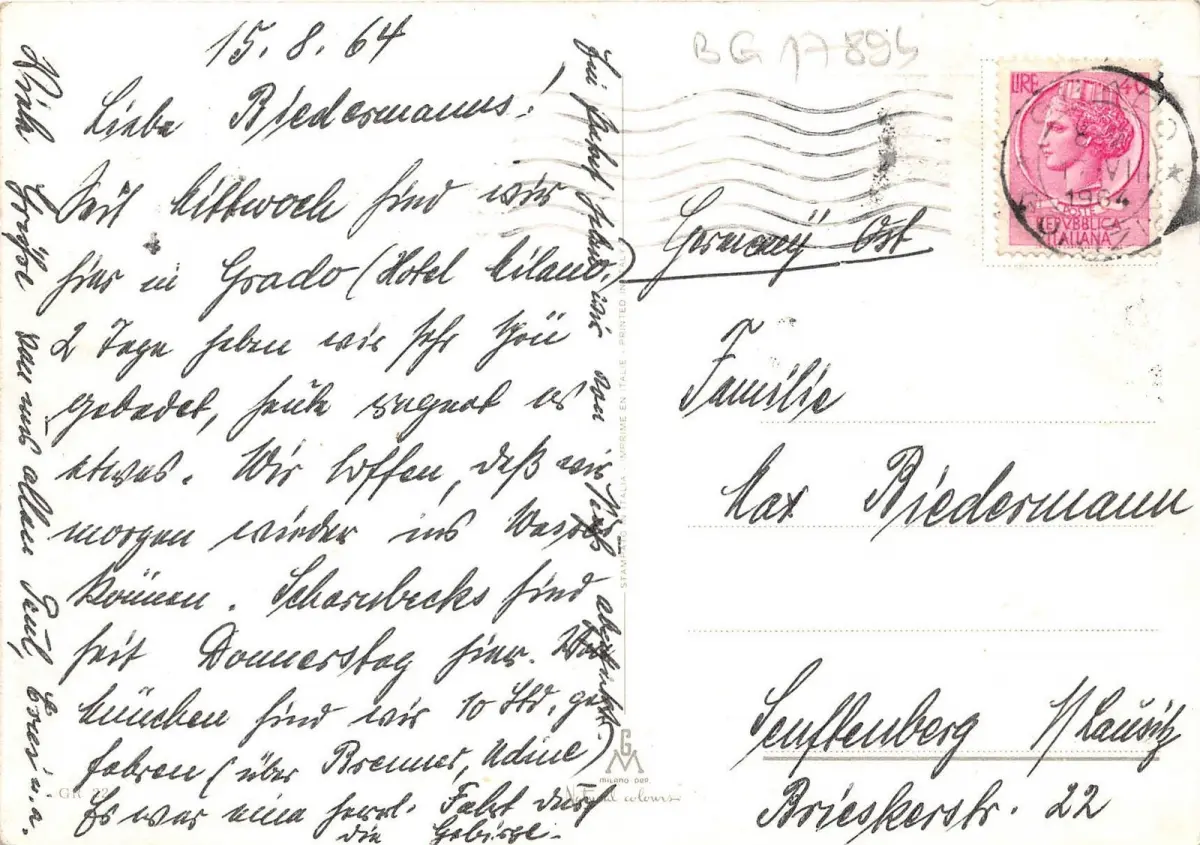 15.8.64
Liebe Riedermanns!
Seit Mittwoch sind wir
hier in Grado (Hotel Milano)
2 Tage haben wir sehr schön
gebadet, heute regnet es
etwas. Wir hoffen, daß wir
morgen wieder ins Wasser
können. Scharnbecks sind
seit Donnerstag hier. Von
München sind wir 10 Std. ge-
fahren (über Brenner, Udine)
Es war eine herrl. Fahrt durch
die Gebirge.
von uns allen Paul,
BG 17895
LIRE 40
POSTE
REPVBBLICA
ITALIANA
1964
Germany Ost
Familie
Max Riedermann
Senftenberg N/Lausitz
Brieskerstr. 22
STAMPATO IN ITALIA - IMPRIME EN ITALIE - PRINTED IN ITALY
MILANO
GR 22
Natural colours